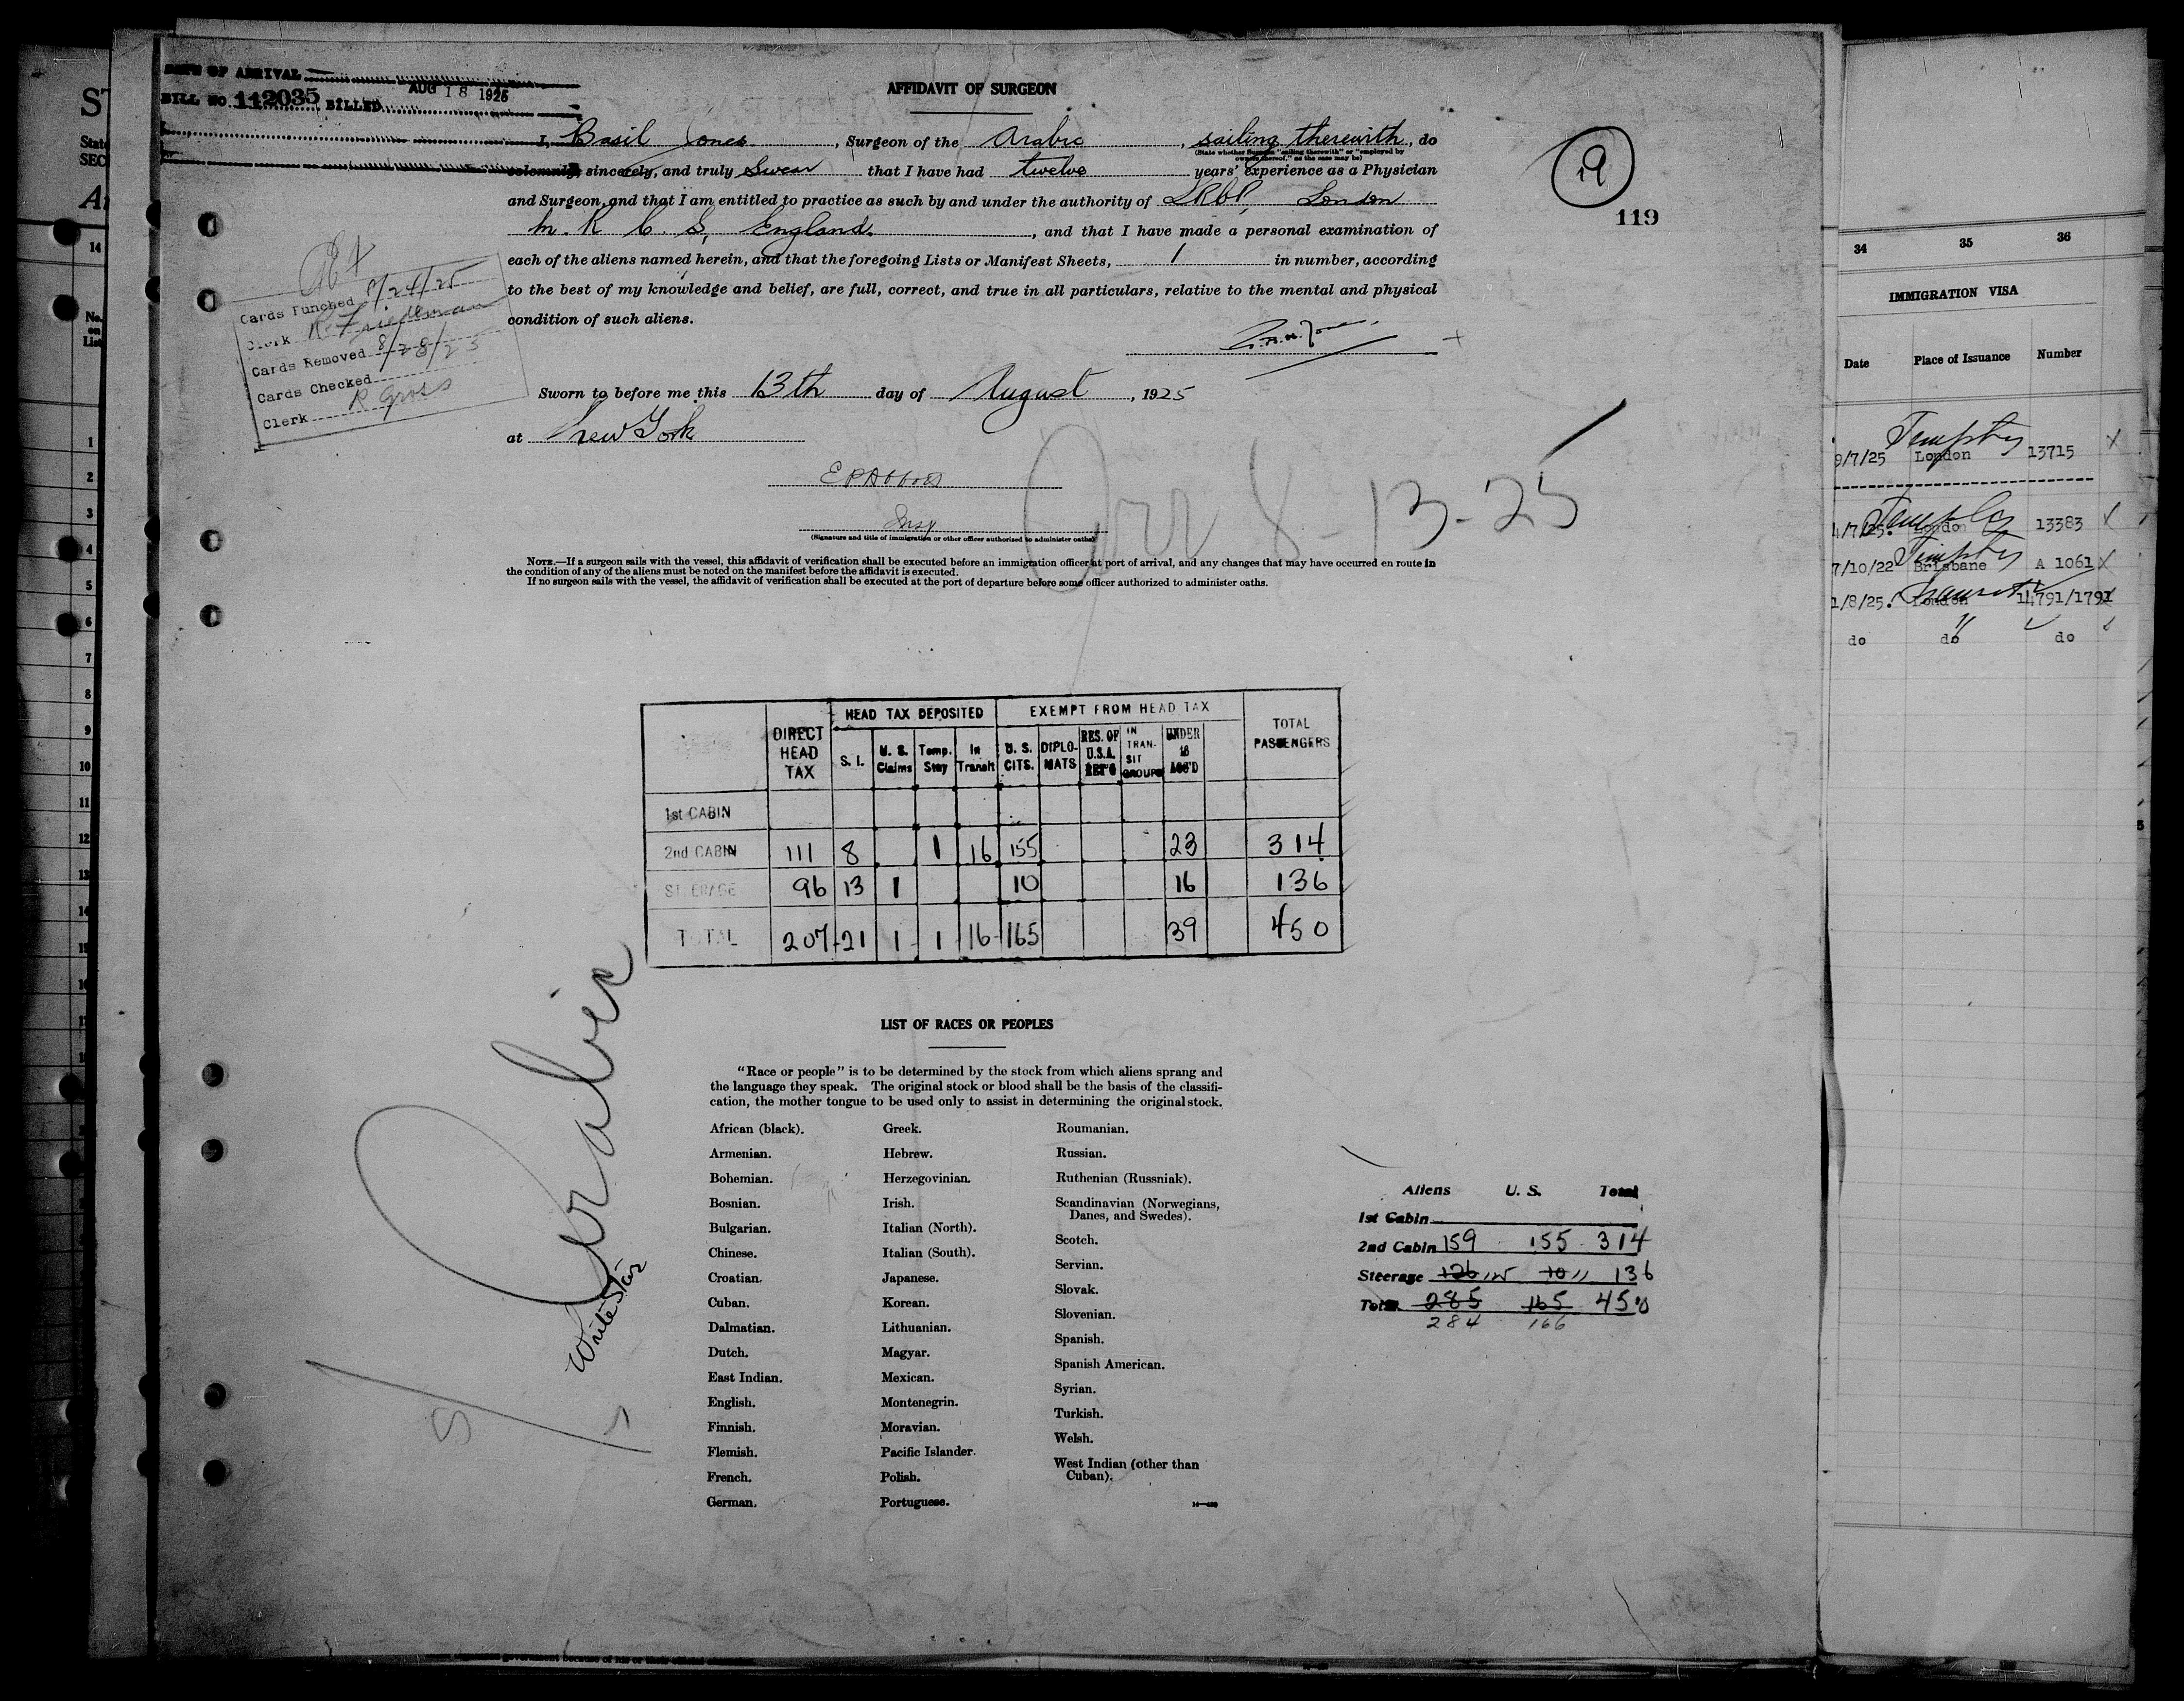 DATE OF ARRIVAL
BILL NO. 112035 BILLED AUG 18 1925
AFFIDAVIT OF SURGEON
I, Basil Jones, Surgeon of the Arabic, sailing therewith, do
(State whether Surgeon "sailing therewith" or "employed by
owners thereof," as the case may be)
solemnly, sincerely, and truly Swear that I have had twelve years' experience as a Physician
and Surgeon, and that I am entitled to practice as such by and under the authority of LRCP, London
M. R. C. S, England., and that I have made a personal examination of
each of the aliens named herein, and that the foregoing Lists or Manifest Sheets, 1 in number, according
to the best of my knowledge and belief, are full, correct, and true in all particulars, relative to the mental and physical
condition of such aliens.
19
119
Cards Punched 8/24/25
Clerk R. Friedman
Cards Removed 8/28/25
Cards Checked
Clerk R Gross
Sworn to before me this 13th day of August, 1925
at New York
Insp
(Signature and title of immigration or other officer authorized to administer oaths)
Arr 8-13-25
NOTE.—If a surgeon sails with the vessel, this affidavit of verification shall be executed before an immigration officer at port of arrival, and any changes that may have occurred en route in
the condition of any of the aliens must be noted on the manifest before the affidavit is executed.
If no surgeon sails with the vessel, the affidavit of verification shall be executed at the port of departure before some officer authorized to administer oaths.
HEAD TAX DEPOSITED EXEMPT FROM HEAD TAX
DIRECT HEAD TAX S. I. U. S. Claims Temp. Stay In Transit U. S. CITS. DIPLOMATS RES. OF U.S.A. RET'G IN TRANSIT GROUPS UNDER 16 ACC'D TOTAL PASSENGERS
1st CABIN
2nd CABIN 111 8 1 16 155 23 314
STEERAGE 96 13 1 10 16 136
TOTAL 207 21 1 1 16 165 39 450
Arabic
White Star
LIST OF RACES OR PEOPLES
"Race or people" is to be determined by the stock from which aliens sprang and
the language they speak. The original stock or blood shall be the basis of the classifi-
cation, the mother tongue to be used only to assist in determining the original stock.
African (black).
Armenian.
Bohemian.
Bosnian.
Bulgarian.
Chinese.
Croatian.
Cuban.
Dalmatian.
Dutch.
East Indian.
English.
Finnish.
Flemish.
French.
German.
Greek.
Hebrew.
Herzegovinian.
Irish.
Italian (North).
Italian (South).
Japanese.
Korean.
Lithuanian.
Magyar.
Mexican.
Montenegrin.
Moravian.
Pacific Islander.
Polish.
Portuguese.
Roumanian.
Russian.
Ruthenian (Russniak).
Scandinavian (Norwegians,
Danes, and Swedes).
Scotch.
Servian.
Slovak.
Slovenian.
Spanish.
Spanish American.
Syrian.
Turkish.
Welsh.
West Indian (other than
Cuban).
Aliens U. S. Total
1st Cabin
2nd Cabin 159 155 314
Steerage 126 125 10 11 136
Total 285 165 450
284 166
34 35 36
IMMIGRATION VISA
Date Place of Issuance Number
9/7/25 London 13715
4/7/25. London 13383
7/10/22 Brisbane A 1061
1/8/25. London 14791/1791
do do do
No. on List
1
2
3
4
5
6
7
8
9
10
11
12
13
14
15